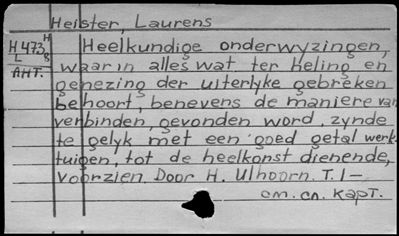 Heister, Laurens
H 473 H 8
L
AHT.
Heelkundige onderwyzingen,
waarin alles wat ter heling en
genezing der uiterlyke gebreken
behoort, benevens de maniere van
verbinden, gevonden word, zynde
te gelyk met een goed getal werk-
tuigen, tot de heelkonst dienende,
voorzien. Door H. Ulhoorn. T. I—
cm. cn. kapt.